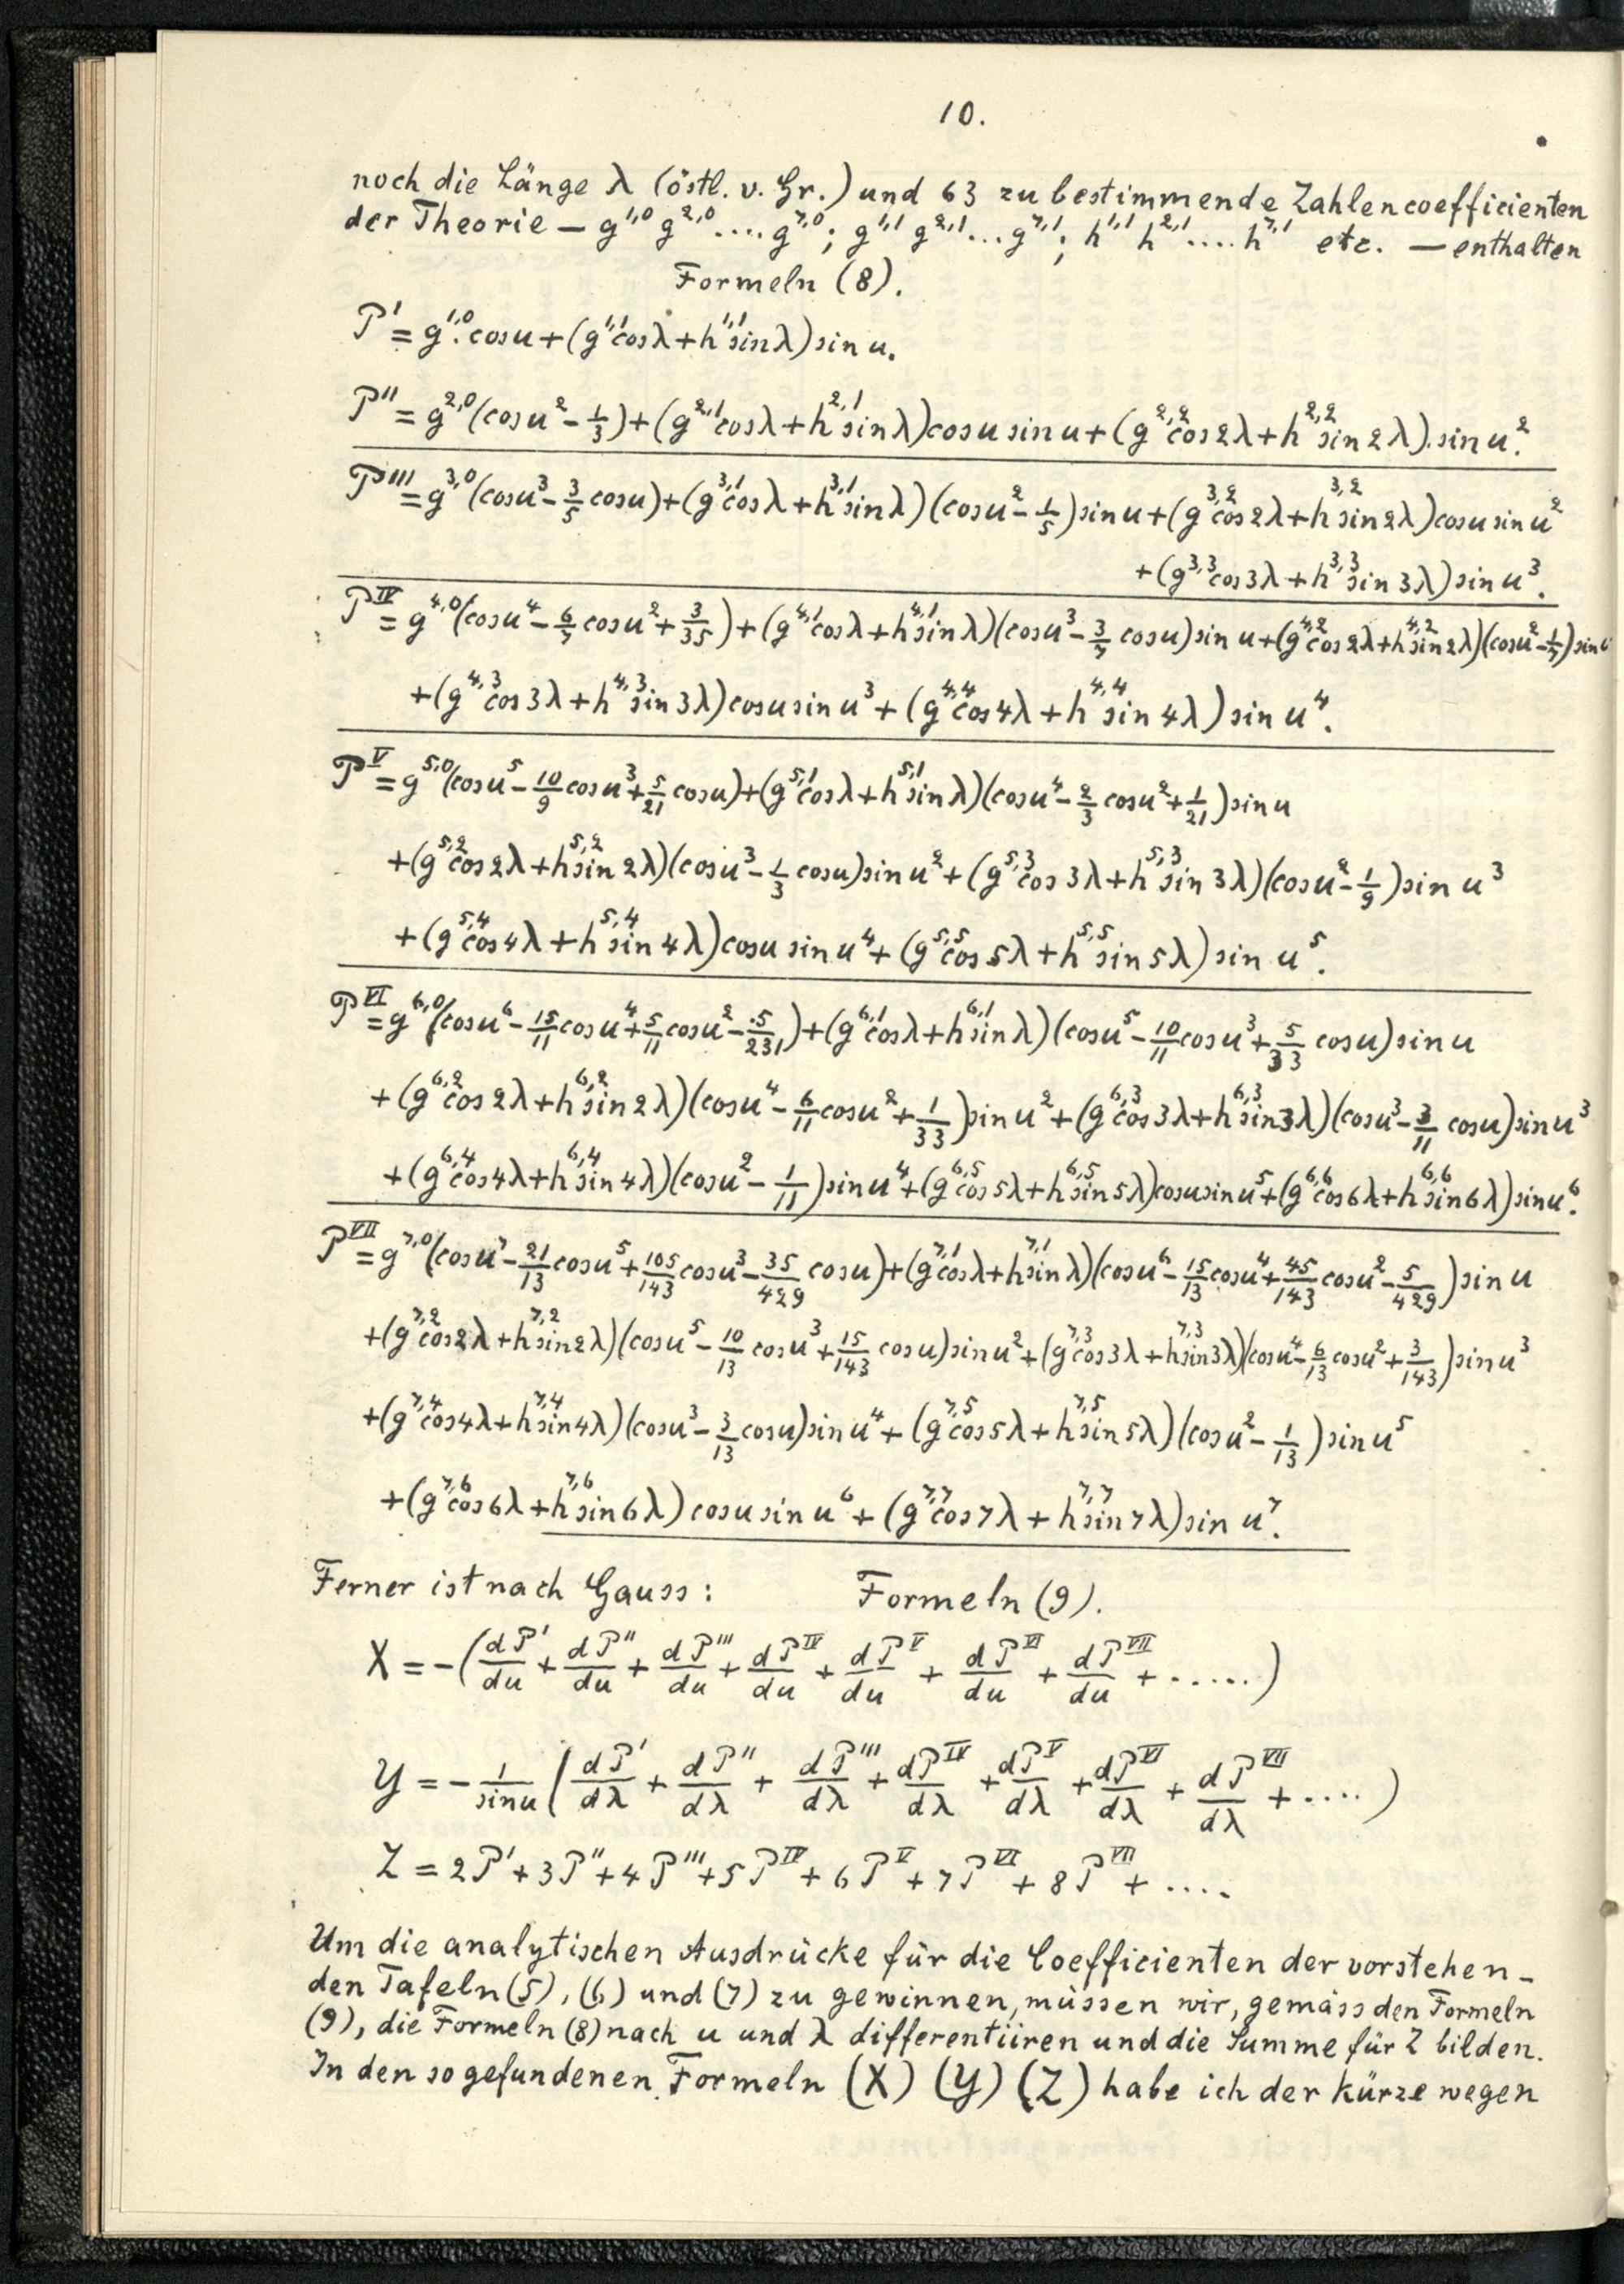 10.
noch die Länge λ (östl. v. Gr.) und 63 zu bestimmende Zahlencoefficienten
der Theorie — g^{1,0} g^{2,0} .... g^{7,0}; g^{1,1} g^{2,1} ... g^{7,1}; h^{1,1} h^{2,1} .... h^{7,1} etc. — enthalten
Formeln (8).
P^{I} = g^{1,0}. cos u + (g^{1,1} cos λ + h^{1,1} sin λ) sin u.
P^{II} = g^{2,0} (cos u^2 - 1/3) + (g^{2,1} cos λ + h^{2,1} sin λ) cos u sin u + (g^{2,2} cos 2λ + h^{2,2} sin 2λ). sin u^2.
P^{III} = g^{3,0} (cos u^3 - 3/5 cos u) + (g^{3,1} cos λ + h^{3,1} sin λ) (cos u^2 - 1/5) sin u + (g^{3,2} cos 2λ + h^{3,2} sin 2λ) cos u sin u^2
+ (g^{3,3} cos 3λ + h^{3,3} sin 3λ) sin u^3.
P^{IV} = g^{4,0} (cos u^4 - 6/7 cos u^2 + 3/35) + (g^{4,1} cos λ + h^{4,1} sin λ) (cos u^3 - 3/7 cos u) sin u + (g^{4,2} cos 2λ + h^{4,2} sin 2λ) (cos u^2 - 1/7) sin u
+ (g^{4,3} cos 3λ + h^{4,3} sin 3λ) cos u sin u^3 + (g^{4,4} cos 4λ + h^{4,4} sin 4λ) sin u^4.
P^{V} = g^{5,0} (cos u^5 - 10/9 cos u^3 + 5/21 cos u) + (g^{5,1} cos λ + h^{5,1} sin λ) (cos u^4 - 2/3 cos u^2 + 1/21) sin u
+ (g^{5,2} cos 2λ + h^{5,2} sin 2λ) (cos u^3 - 1/3 cos u) sin u^2 + (g^{5,3} cos 3λ + h^{5,3} sin 3λ) (cos u^2 - 1/9) sin u^3
+ (g^{5,4} cos 4λ + h^{5,4} sin 4λ) cos u sin u^4 + (g^{5,5} cos 5λ + h^{5,5} sin 5λ) sin u^5.
P^{VI} = g^{6,0} (cos u^6 - 15/11 cos u^4 + 5/11 cos u^2 - 5/231) + (g^{6,1} cos λ + h^{6,1} sin λ) (cos u^5 - 10/11 cos u^3 + 5/33 cos u) sin u
+ (g^{6,2} cos 2λ + h^{6,2} sin 2λ) (cos u^4 - 6/11 cos u^2 + 1/33) sin u^2 + (g^{6,3} cos 3λ + h^{6,3} sin 3λ) (cos u^3 - 3/11 cos u) sin u^3
+ (g^{6,4} cos 4λ + h^{6,4} sin 4λ) (cos u^2 - 1/11) sin u^4 + (g^{6,5} cos 5λ + h^{6,5} sin 5λ) cos u sin u^5 + (g^{6,6} cos 6λ + h^{6,6} sin 6λ) sin u^6.
P^{VII} = g^{7,0} (cos u^7 - 21/13 cos u^5 + 105/143 cos u^3 - 35/429 cos u) + (g^{7,1} cos λ + h^{7,1} sin λ) (cos u^6 - 15/13 cos u^4 + 45/143 cos u^2 - 5/429) sin u
+ (g^{7,2} cos 2λ + h^{7,2} sin 2λ) (cos u^5 - 10/13 cos u^3 + 15/143 cos u) sin u^2 + (g^{7,3} cos 3λ + h^{7,3} sin 3λ) (cos u^4 - 6/13 cos u^2 + 3/143) sin u^3
+ (g^{7,4} cos 4λ + h^{7,4} sin 4λ) (cos u^3 - 3/13 cos u) sin u^4 + (g^{7,5} cos 5λ + h^{7,5} sin 5λ) (cos u^2 - 1/13) sin u^5
+ (g^{7,6} cos 6λ + h^{7,6} sin 6λ) cos u sin u^6 + (g^{7,7} cos 7λ + h^{7,7} sin 7λ) sin u^7.
Ferner ist nach Gauss: Formeln (9).
X = - (dP^{I}/du + dP^{II}/du + dP^{III}/du + dP^{IV}/du + dP^{V}/du + dP^{VI}/du + dP^{VII}/du + .....)
Y = - 1/sin u (dP^{I}/dλ + dP^{II}/dλ + dP^{III}/dλ + dP^{IV}/dλ + dP^{V}/dλ + dP^{VI}/dλ + dP^{VII}/dλ + ....)
Z = 2P^{I} + 3P^{II} + 4P^{III} + 5P^{IV} + 6P^{V} + 7P^{VI} + 8P^{VII} + ....
Um die analytischen Ausdrücke für die Coefficienten der vorstehen-
den Tafeln (5), (6) und (7) zu gewinnen, müssen wir, gemäss den Formeln
(9), die Formeln (8) nach u und λ differentiiren und die Summe für Z bilden.
In den so gefundenen Formeln (X) (Y) (Z) habe ich der kürze wegen